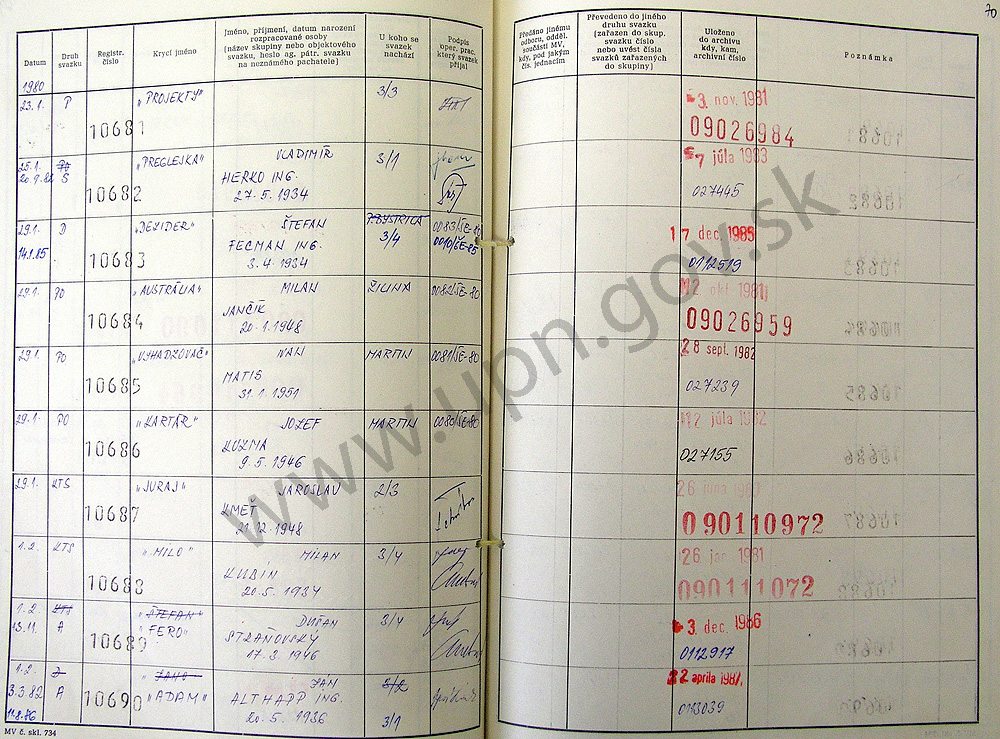 70
Datum
Druh svazku
Registr. číslo
Krycí jméno
Jméno, příjmení, datum narození
rozpracované osoby
(název skupiny nebo objektového
svazku, heslo ag. pátr. svazku
na neznámého pachatele)
U koho se
svazek
nachází
Podpis
oper. prac.
který svazek
přijal
Předáno jinému
odboru, odděl.
součásti MV,
kdy, pod jakým
čís. jednacím
Převedeno do jiného
druhu svazku
(zařazen do skup.
svazku číslo
nebo uvést čísla
svazků zařazených
do skupiny)
Uloženo
do archivu
kdy, kam,
archivní číslo
Poznámka
1980
23.1. P 10681 "PROJEKTY" 3/3
3. nov. 1981
09026984
25.1. PO "PREGLEJKA" VLADIMÍR 3/1
S 10682 HERKO ING.
27.5.1934
7 júla 1983
027445
29.1. D "DEZIDER" ŠTEFAN P.BYSTRICA 0083/ŠE-80
14.1.85 10683 FECMAN ING. 3/4 0010/ŠE-85
3.4.1934
17 dec. 1985
0112519
29.1. PO "AUSTRÁLIA" MILAN ŽILINA 0082/ŠE-80
10684 JANČÍK
20.1.1948
12 okt 1981
09026959
29.1. PO "VYHADZOVAČ" IVAN MARTIN 0081/ŠE-80
10685 MATIS
31.1.1951
28 sept. 1982
027239
29.1. PO "KARTÁR" JOZEF MARTIN 0080/ŠE-80
10686 KUZMA
9.5.1946
12 júla 1982
027155
29.1. KTS "JURAJ" JAROSLAV 2/3
10687 KMEŤ
21.12.1948
26 júna
090110972
1.2. KTS "MILO" MILAN 3/4
10688 KUBÍN
20.5.1934
26 jan. 1981
090111072
1.2. KTS "ŠTEFAN" DUŠAN 3/4
13.11. A 10689 "FERO" STRAŇOVSKÝ
17.3.1946
3. dec. 1986
0112917
1.2. "JANO" JAN 3/2
3.3.82 A 10690 "ADAM" ALTHAPP ING.
11.8.86 20.5.1936 3/1
22 apríla 1987
0113039
MV č. skl. 734
www.upn.gov.sk